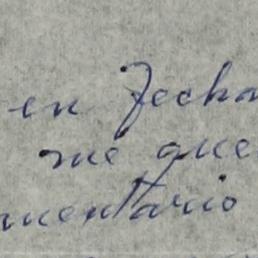 en fecha
me que
mentario